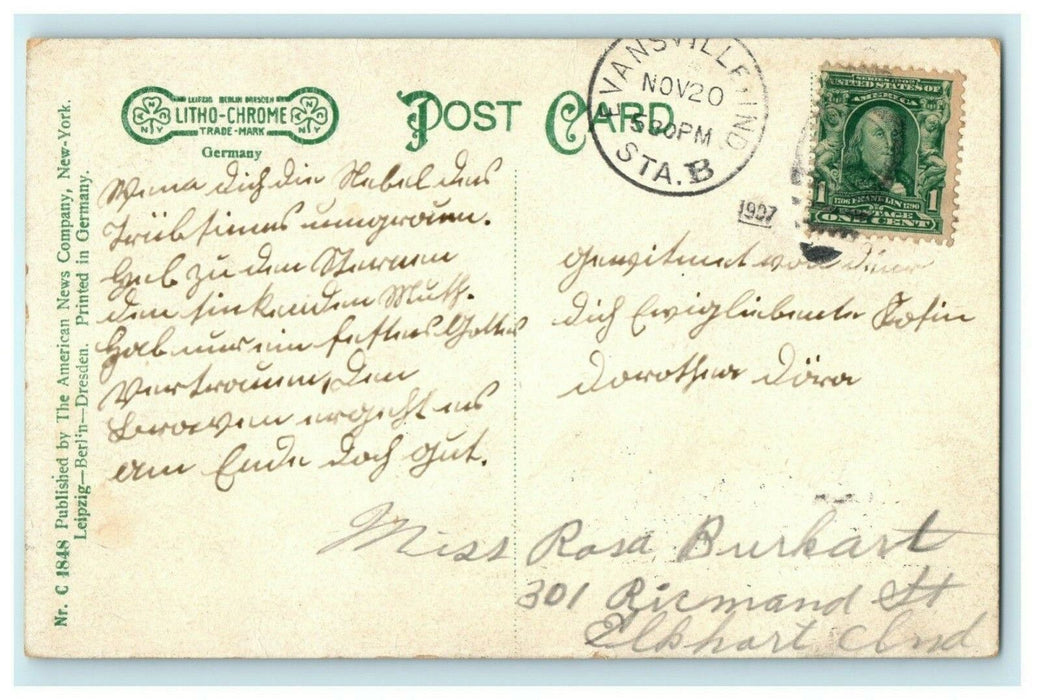 LEIPZIG BERLIN DRESDEN
LITHO-CHROME
TRADE-MARK
Germany
POST CARD
EVANSVILLE, IND
NOV 20
5 30 PM
STA. B
1907
SERIES 1902
UNITED STATES OF
AMERICA
1 1706 FRANKLIN 1790 1
POSTAGE
ONE CENT
Nr. C 1848 Published by The American News Company, New-York.
Leipzig—Berlin—Dresden. Printed in Germany.
Wenn dich die Nebel des
Trübsinns umgrauen.
Heb zu den Sternen
den sinkenden Muth.
Hab nur ein festes Gottes
Vertrauen, den
Braven ergeht es
am Ende doch gut.
gewitmet von deiner
dich Ewigliebente
Dorothea Döra
Miss Rosa Burkart
301 Ricmand St
Elkhart Ind